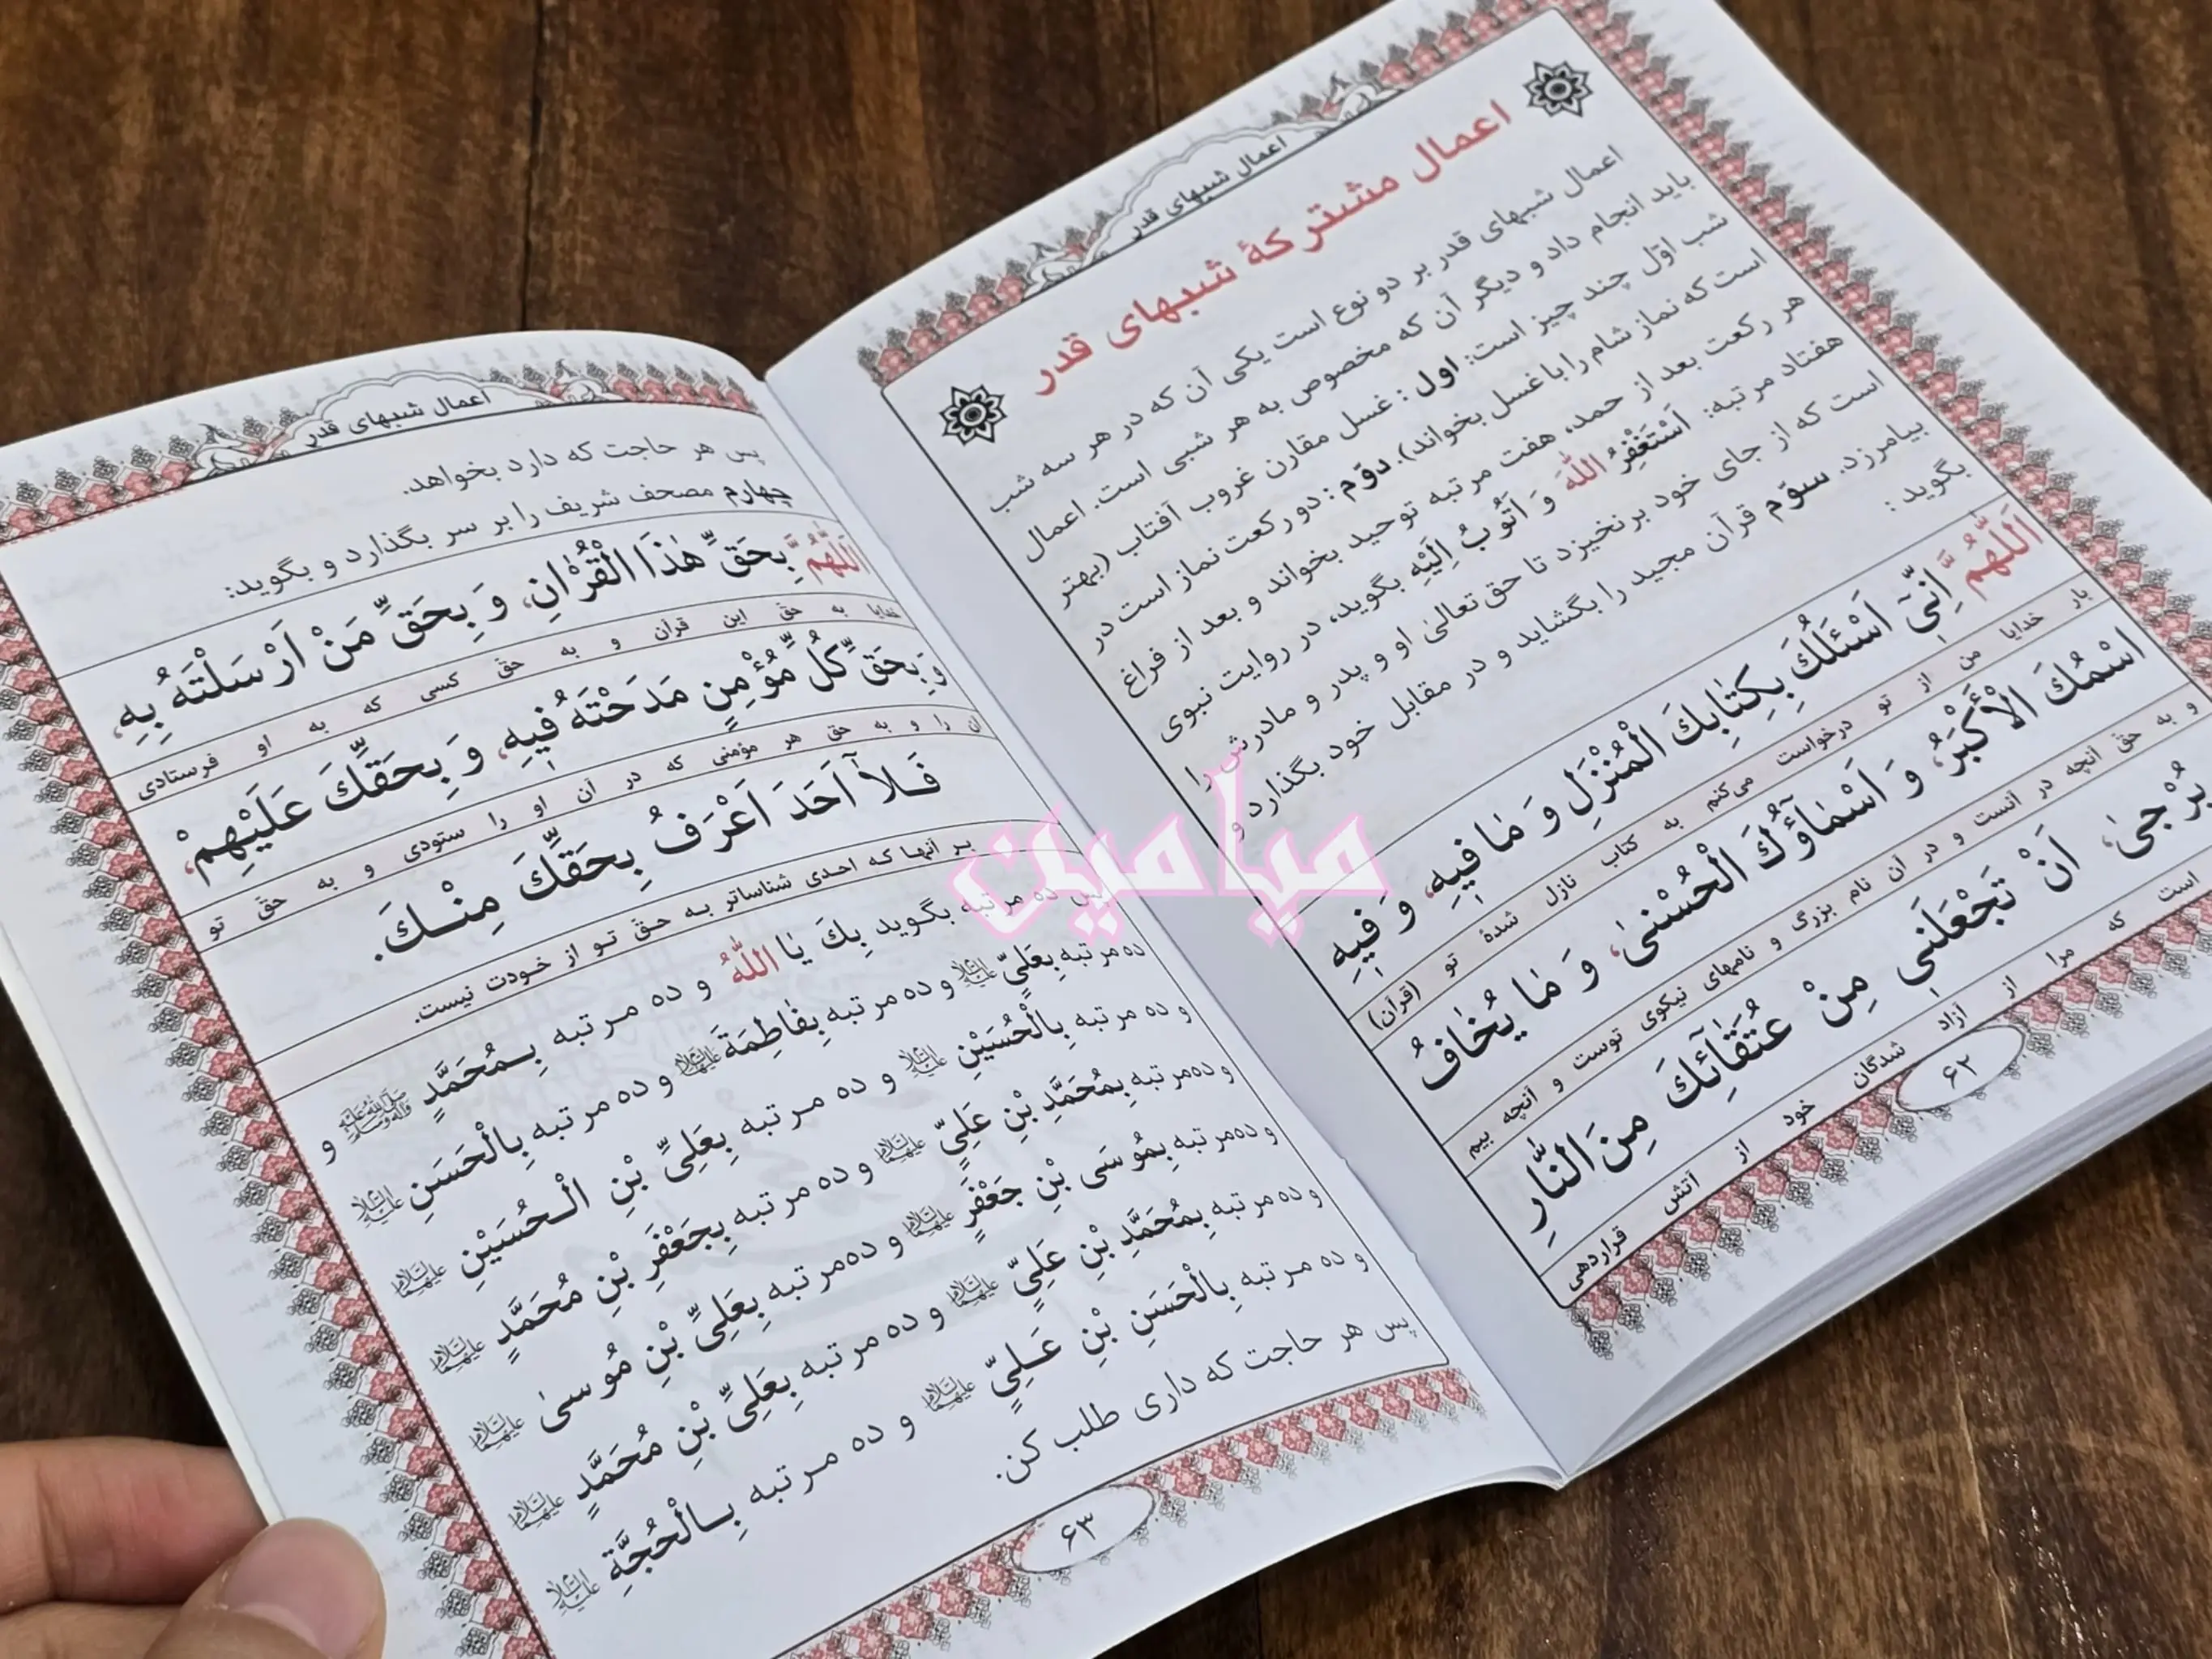 اعمال شبهای قدر
اعمال مشترکهٔ شبهای قدر
اعمال شبهای قدر بر دو نوع است یکی آن که در هر سه شب
باید انجام داد و دیگر آن که مخصوص به هر شبی است. اعمال
شب اوّل چند چیز است: اول : غسل مقارن غروب آفتاب (بهتر
است که نماز شام را با غسل بخواند). دوّم : دو رکعت نماز است در
هر رکعت بعد از حمد، هفت مرتبه توحید بخواند و بعد از فراغ
هفتاد مرتبه: اَسْتَغْفِرُ اللّٰهَ وَ اَتُوبُ اِلَیْهِ بگوید، در روایت نبوی
است که از جای خود برنخیزد تا حق تعالیٰ او و پدر و مادرش را
بیامرزد. سوّم قرآن مجید را بگشاید و در مقابل خود بگذارد و
بگوید :
اَللّٰهُمَّ اِنّیٓ اَسْئَلُكَ بِكِتٰابِكَ الْمُنْزَلِ وَ مٰا فیهِ، وَ فیهِ
بار خدایا من از تو درخواست می‌کنم به کتاب نازل شدهٔ تو (قرآن)
اسْمُكَ الْأَكْبَرُ، وَ اَسْمٰاۤؤُكَ الْحُسْنیٰ، وَ مٰا یُخٰافُ
و به حق آنچه در آنست و در آن نام بزرگ و نامهای نیکوی توست و آنچه بیم
یُرْجیٰ، اَنْ تَجْعَلَنی مِنْ عُتَقٰاۤئِكَ مِنَ النّٰارِ
است که مرا از آزاد شدگان خود از آتش قراردهی
۶۲
اعمال شبهای قدر
پس هر حاجت که دارد بخواهد.
چهارم مصحف شریف را بر سر بگذارد و بگوید:
اَللّٰهُمَّ بِحَقِّ هٰذَا الْقُرْاٰنِ، وَ بِحَقِّ مَنْ اَرْسَلْتَهُ بِهِ،
خدایا به حق این قرآن و به حق کسی که به او فرستادی
وَ بِحَقِّ كُلِّ مُؤْمِنٍ مَدَحْتَهُ فیهِ، وَ بِحَقِّكَ عَلَیْهِمْ،
آن را و به حق هر مؤمنی که در آن او را ستودی و به حق تو
فَلاٰ اَحَدَ اَعْرَفُ بِحَقِّكَ مِنْكَ.
بر آنها که احدی شناساتر به حق تو از خودت نیست.
پس ده مرتبه بگوید بِكَ یٰا اَللّٰهُ و ده مرتبه بِمُحَمَّدٍ صلی الله علیه وآله وسلم و
ده مرتبه بِعَلِیٍّ علیه السلام و ده مرتبه بِفٰاطِمَةَ علیها السلام و ده مرتبه بِالْحَسَنِ علیه السلام
و ده مرتبه بِالْحُسَیْنِ علیه السلام و ده مرتبه بِعَلِیِّ بْنِ الْحُسَیْنِ علیهما السلام
و ده مرتبه بِمُحَمَّدِ بْنِ عَلِیٍّ علیهما السلام و ده مرتبه بِجَعْفَرِ بْنِ مُحَمَّدٍ علیهما السلام
و ده مرتبه بِمُوسَی بْنِ جَعْفَرٍ علیهما السلام و ده مرتبه بِعَلِیِّ بْنِ مُوسیٰ علیهما السلام
و ده مرتبه بِمُحَمَّدِ بْنِ عَلِیٍّ علیهما السلام و ده مرتبه بِعَلِیِّ بْنِ مُحَمَّدٍ علیهما السلام
و ده مرتبه بِالْحَسَنِ بْنِ عَلِیٍّ علیهما السلام و ده مرتبه بِالْحُجَّةِ علیه السلام
پس هر حاجت که داری طلب کن.
۶۳
میامین